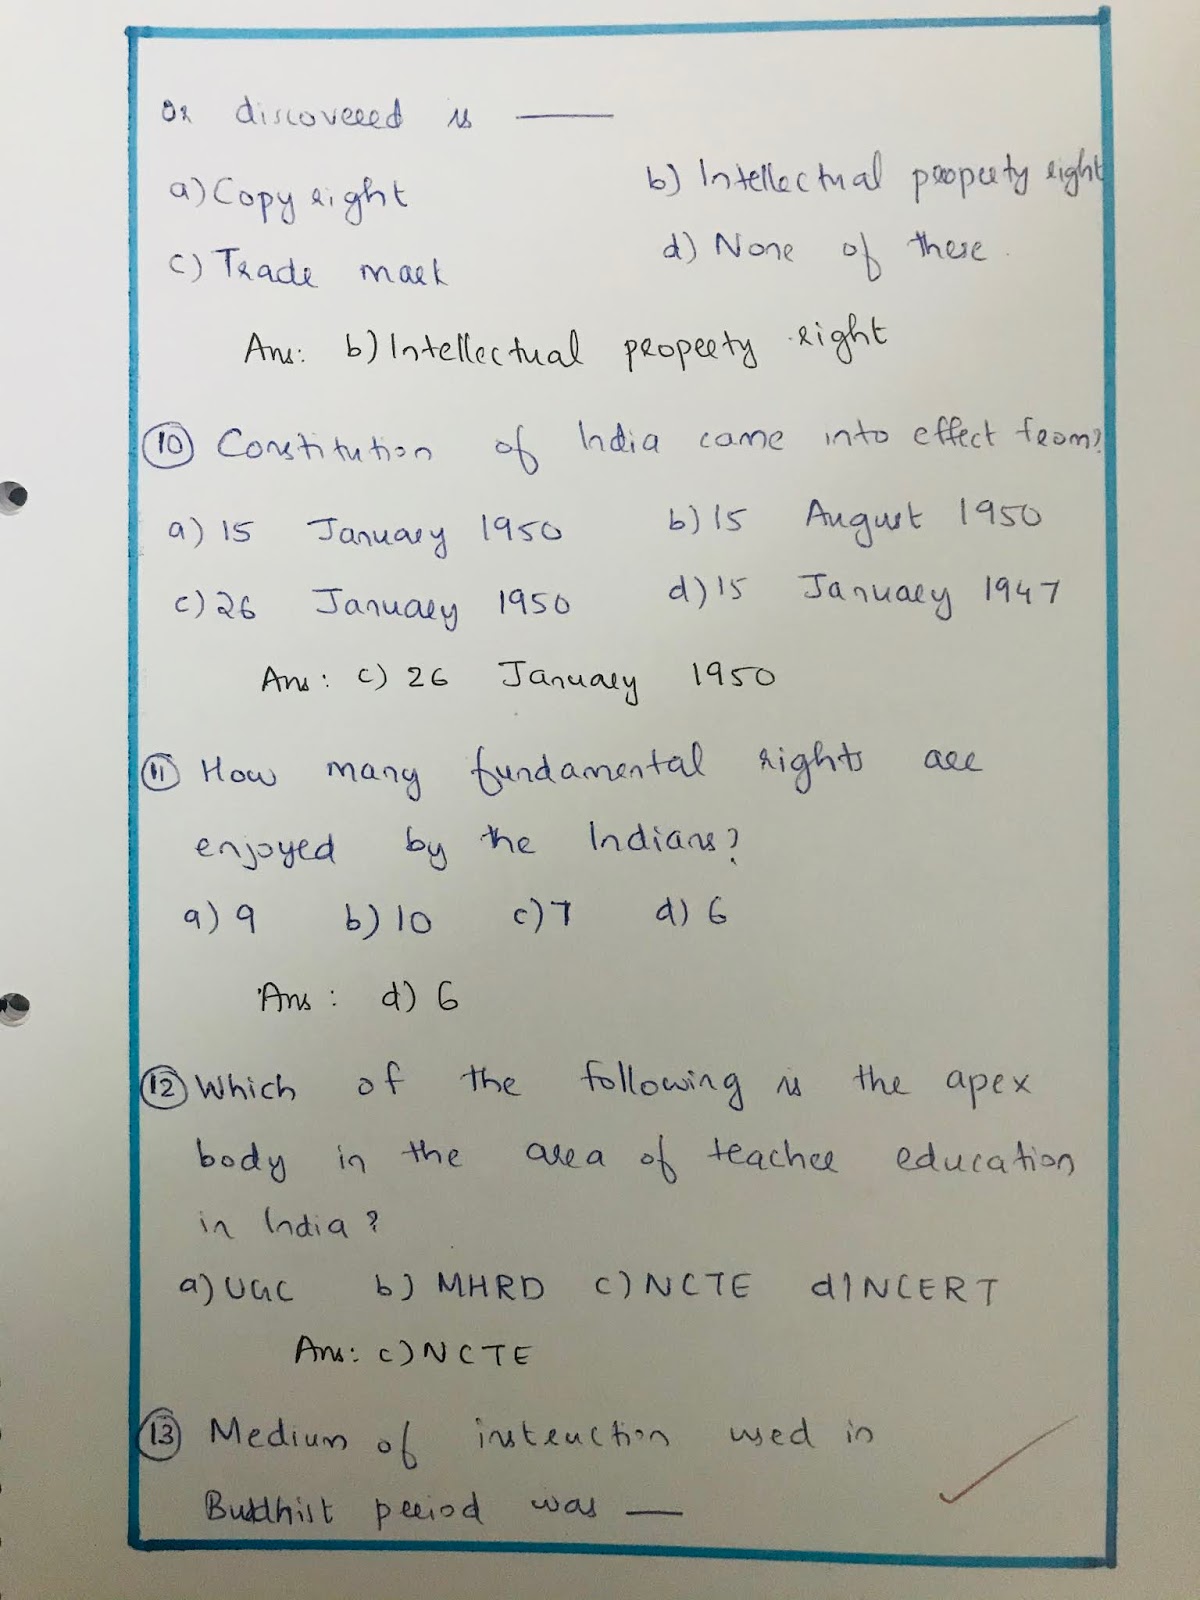 or discovered is ——
a) Copy right b) Intellectual property right
c) Trade mark d) None of these.
Ans: b) Intellectual property right
10 Constitution of India came into effect from?
a) 15 January 1950 b) 15 August 1950
c) 26 January 1950 d) 15 January 1947
Ans: c) 26 January 1950
11 How many fundamental rights are
enjoyed by the Indians?
a) 9 b) 10 c) 7 d) 6
Ans: d) 6
12 Which of the following is the apex
body in the area of teacher education
in India?
a) UGC b) MHRD c) NCTE d) NCERT
Ans: c) NCTE
13 Medium of instruction used in
Buddhist period was —